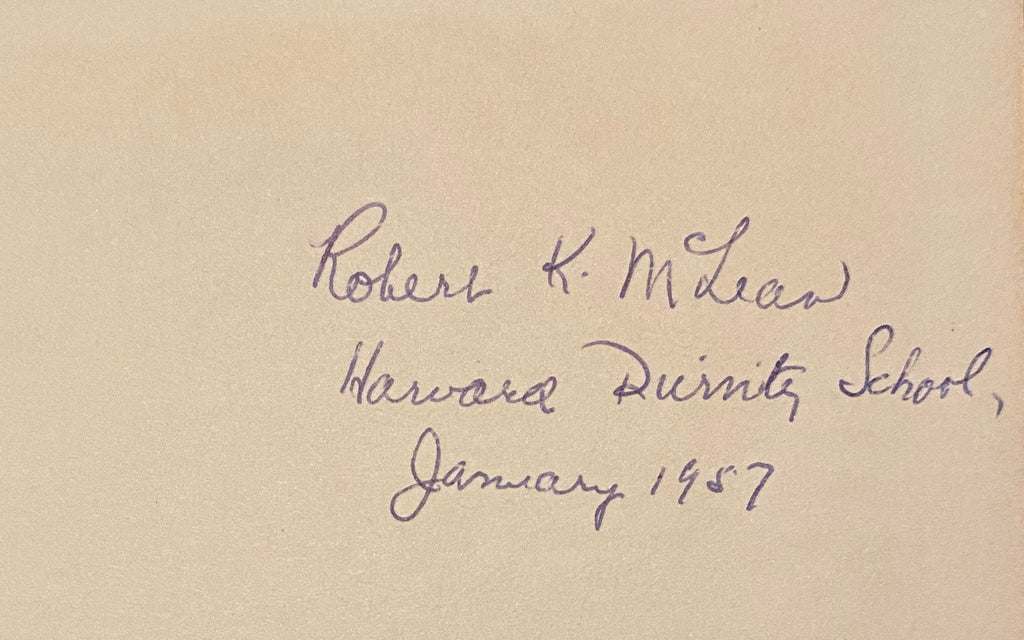 Robert K. McLean
Harvard Divinity School,
January 1957